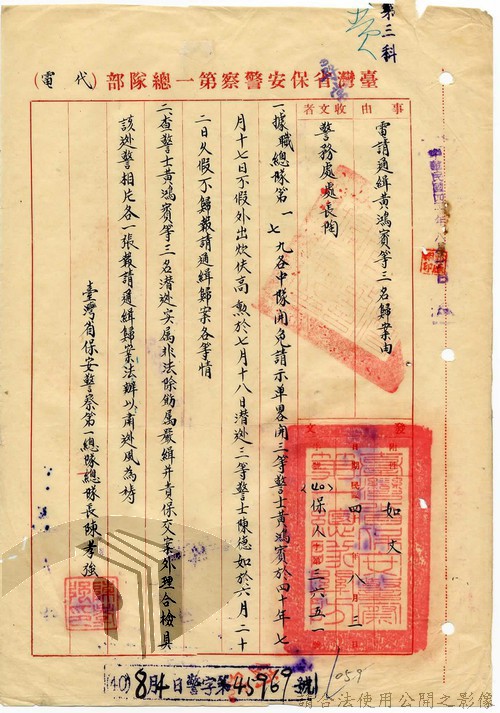 第三科
臺灣省保安警察第一總隊部（代電）
事由
電請通緝黃鴻賓等三名歸案由
收文者
警務處處長陶
一、據職總隊第一七九各中隊開免請示單畧開三等警士黃鴻賓於四十年七
月十七日不假外出炊伕高勲於七月十八日潛逃三等警士陳德如於六月二十
二日久假不歸報請通緝歸案各等情
二、查警士黃鴻賓等三名潛逃实属非法除飭属嚴緝并責保交案外理合檢具
該逃警相片各一張報請通緝歸案法辦以肅逃風為禱
臺灣省保安警察第一總隊總隊長陳孝強
發文
附件
如文
日期
民國四十年八月三日
(40)保人字第三六五一號
(40)8月4日警字第45969號
1059
請合法使用公開之影像